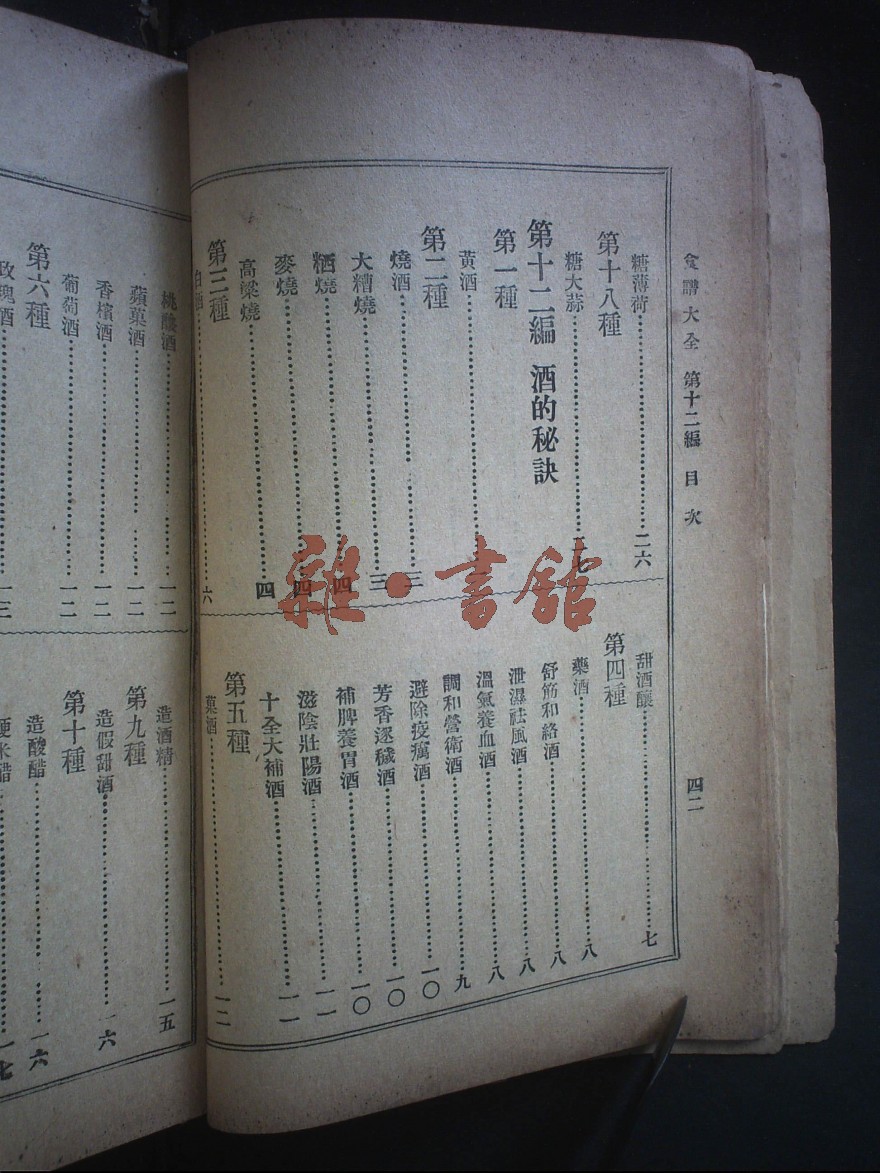 食譜大全 第十二編 目次
四二
糖薄荷 二六
第十八種
糖大蒜
第十二編 酒的秘訣
第一種
黄酒
第二種
燒酒 三
大糟燒 三
粞燒 四
麥燒 四
高粱燒 四
第三種
白酒 六
甜酒釀 七
第四種
藥酒 八
舒筋和絡酒 八
泄濕祛風酒 八
溫氣養血酒 八
調和營衛酒 九
避除疫癘酒 一〇
芳香逐穢酒 一〇
補脾養胃酒 一〇
滋陰壯陽酒 一一
十全大補酒 一一
第五種
菓酒 一二
酒 一二
蘋菓酒 一二
香檳酒 一二
葡萄酒 一二
第六種
玫瑰酒 一三
造酒精 一五
第九種
造假甜酒 一六
第十種
造酸醋 一六
粳米醋 一七
雜·書舘